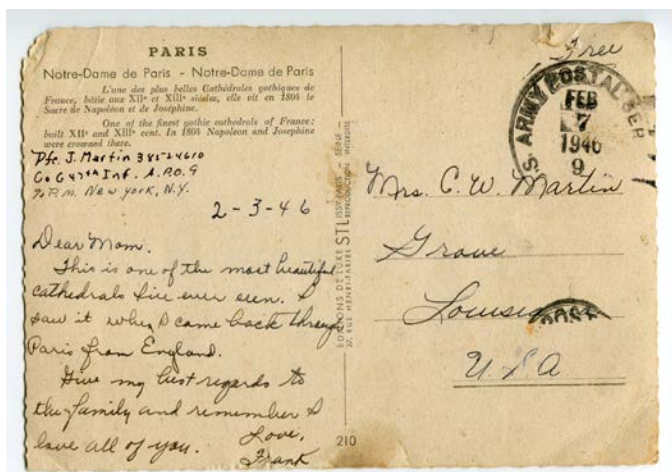 PARIS
Notre-Dame de Paris - Notre-Dame de Paris
L'une des plus belles Cathédrales gothiques de
France, bâtie aux XIIe et XIIIe siècles, elle vit en 1804 le
Sacre de Napoléon et de Joséphine.
One of the finest gothic cathedrals of France;
built XIIe and XIIIe cent. In 1804 Napoleon and Josephine
were crowned there.
Pfc. J. Martin 38524610
Co G 47th Inf. A.P.O. 9
% P.M. New York, N.Y.
2-3-46
Dear Mom.
This is one of the most beautiful
cathedrals I've ever seen. I
saw it when I came back through
Paris from England.
Give my best regards to
the family and remember I
love all of you.
Love,
Frank
EDITIONS DE LUXE STL
REPRODUCTION INTERDITE
210
Free
U.S. ARMY POSTAL SER
FEB
7
1946
9
Mrs. C. W. Martin
Louisiana
U S A